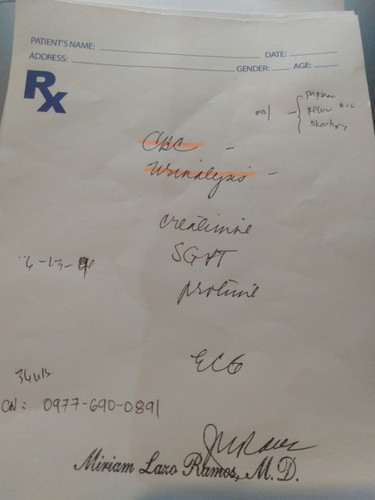 PATIENT'S NAME: DATE:
ADDRESS: GENDER: AGE:
Rx
CBC -
Urinalysis -
creatinine
SGPT
protime
ECG
CN: 0977-690-0891
Miriam Lazo Ramos, M.D.